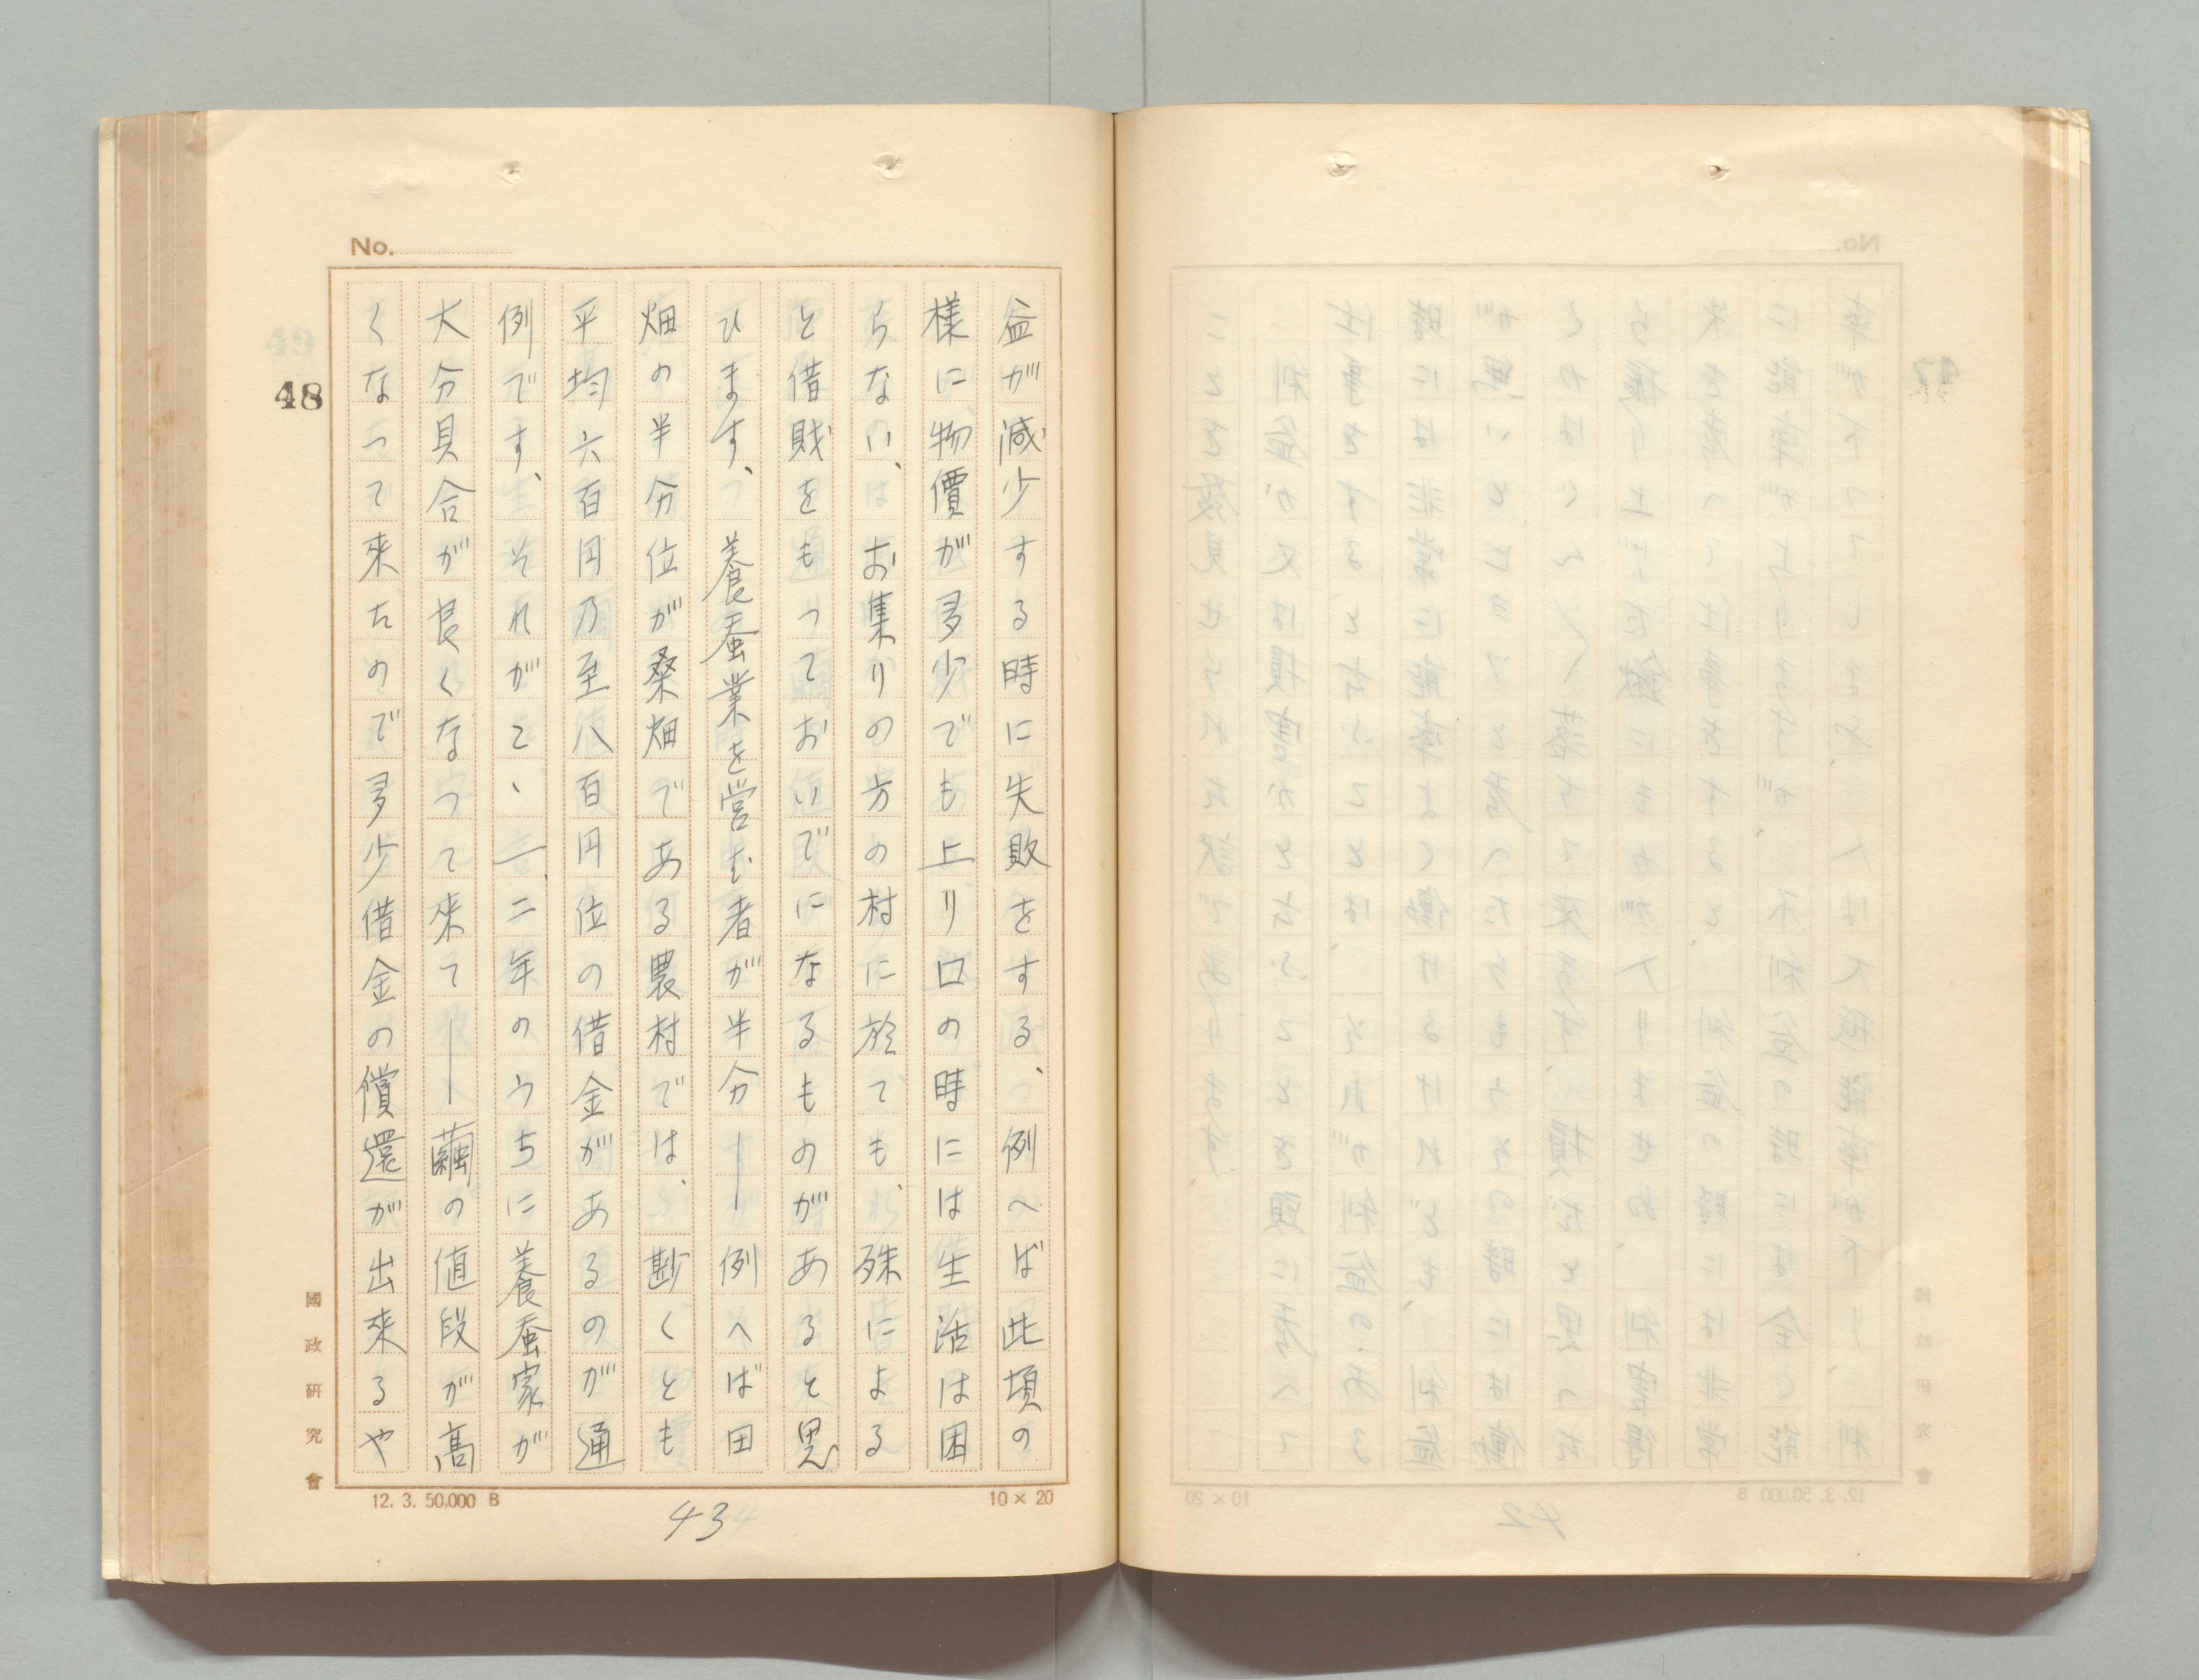 No.
益が減少する時に失敗をする、例へば此頃の
様に物價が多少でも上り口の時には生活は困
らない、お集りの方の村に於ても、殊による
と借財をもつておいでになるものがあると思
ひます、養蚕業を営む者が半分――例へば田
畑の半分位が桑畑である農村では、尠くとも
平均六百円乃至八百円位の借金があるのが通
例です、それがこゝ一、二年のうちに養蚕家が
大分具合が良くなつて来て――繭の値段が高
くなつて來たので多少借金の償還が出來るや
48
國政研究會
10×20
12. 3. 50,000 B
43